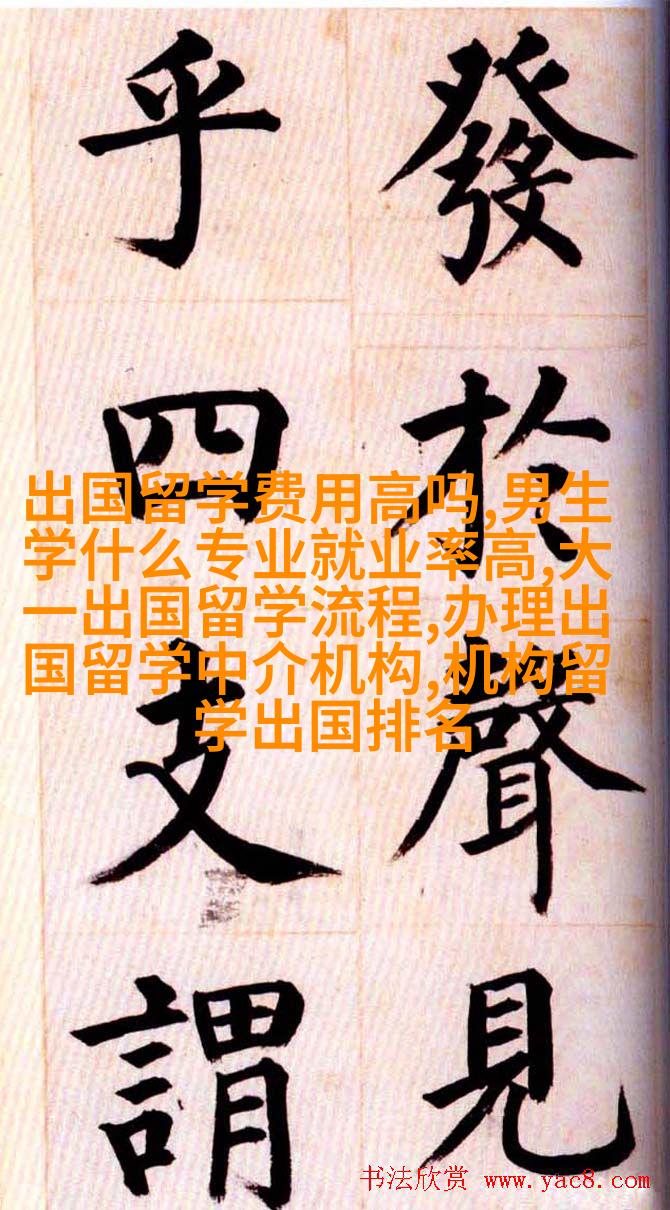 發於聲見
乎四支謂
出国留学费用高吗,男生
学什么专业就业率高,大
一出国留学流程,办理出
国留学中介机构,机构留
学出国排名
书法欣赏 www.yac8.com